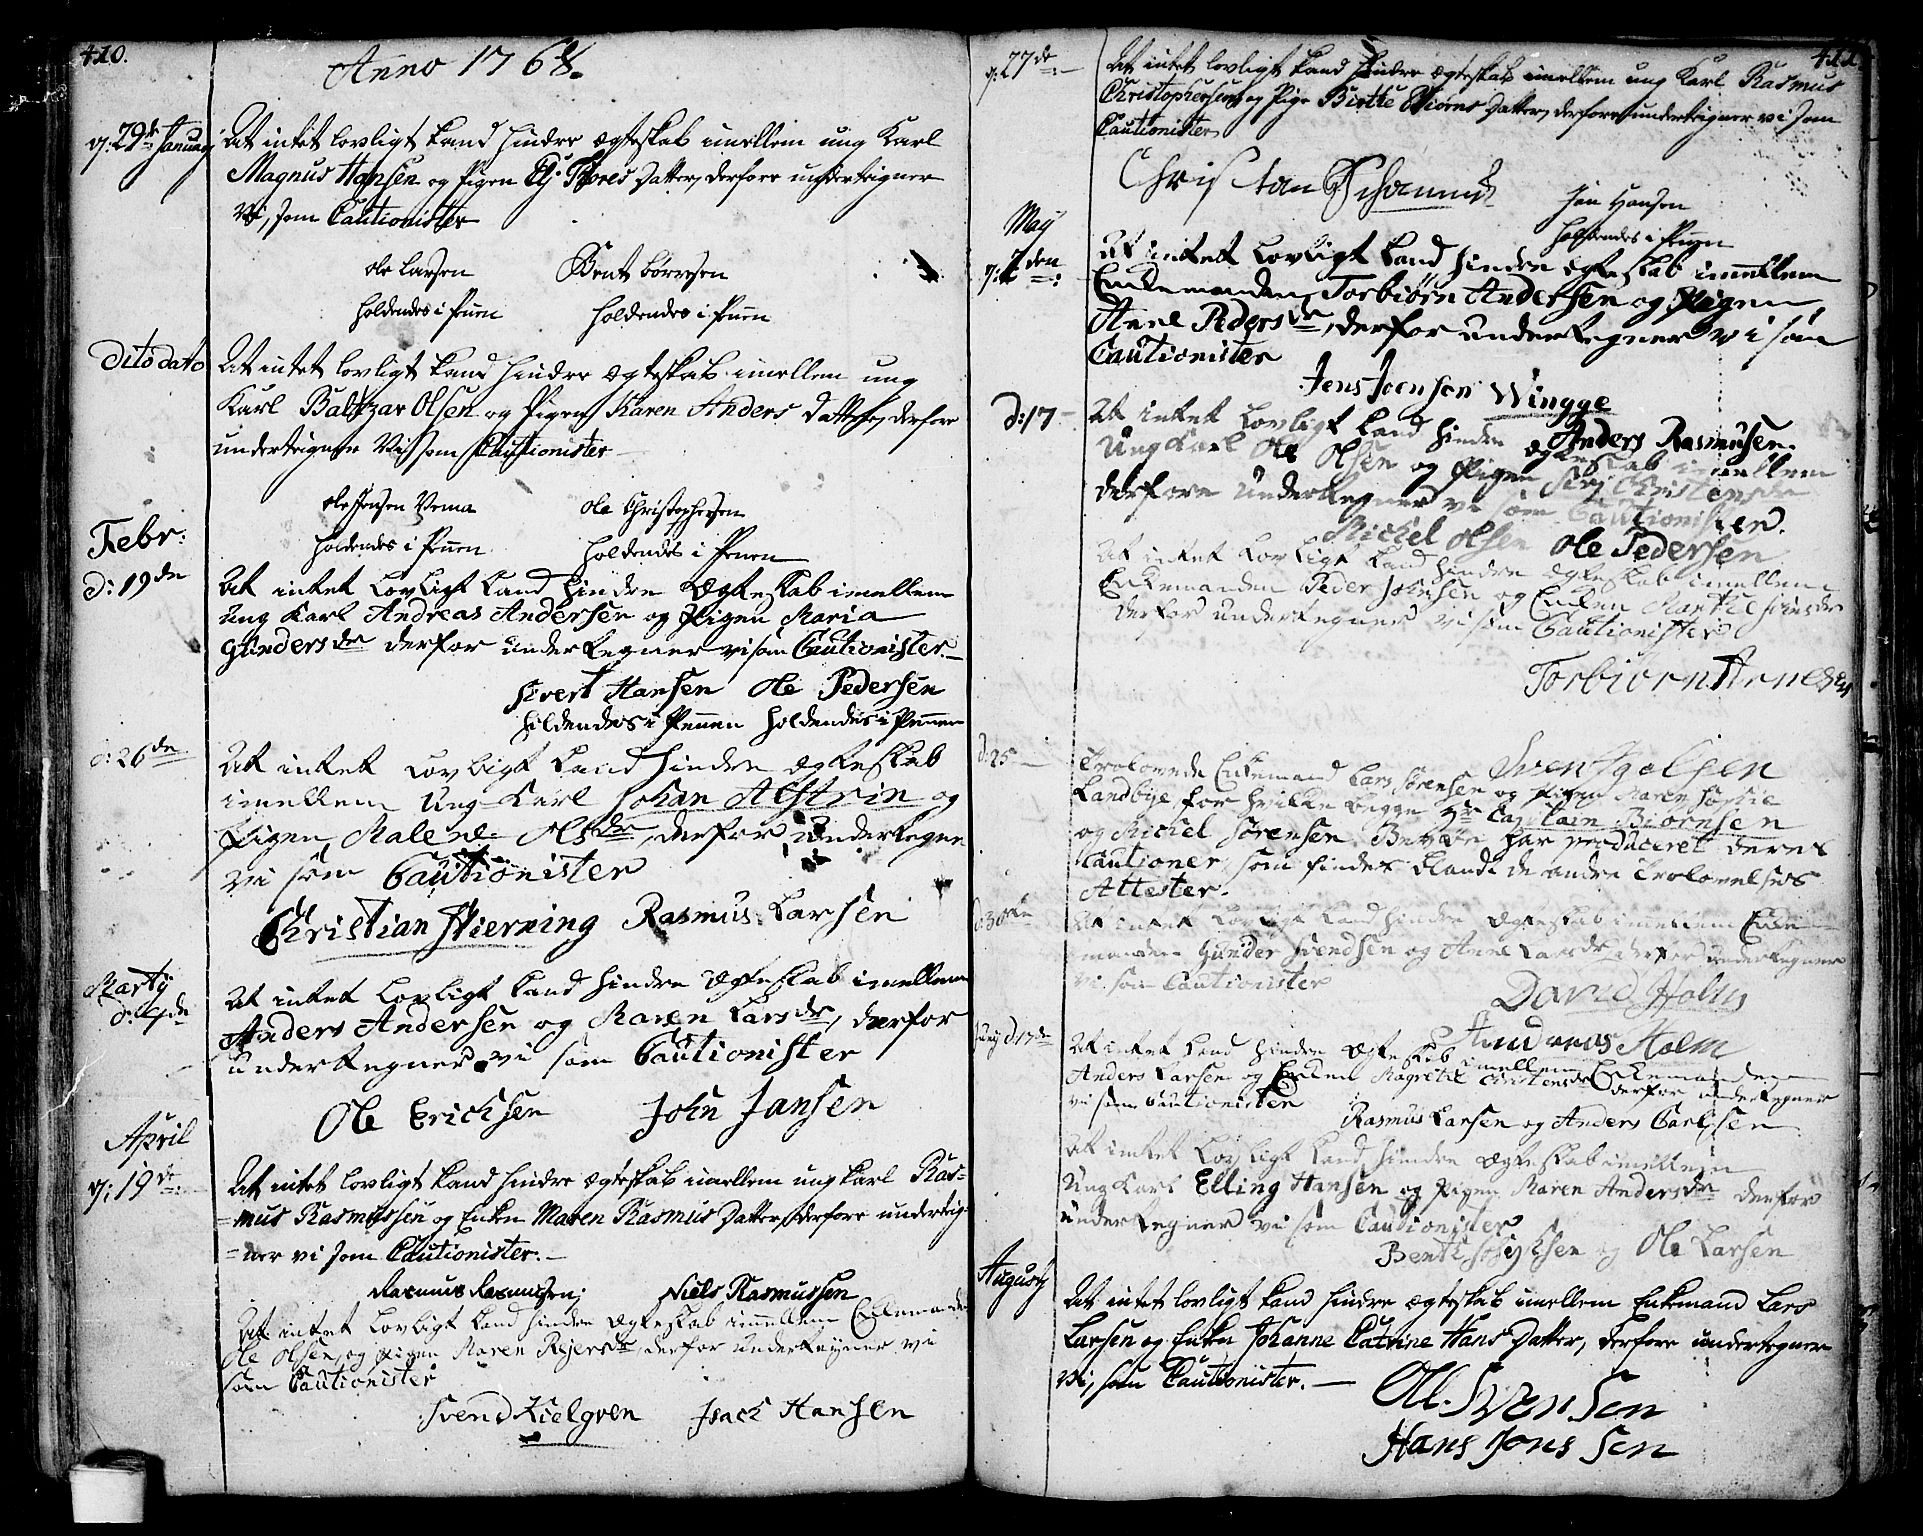 410.
Anno 1768.
d: 29de January
At intet lovligt kand hindre ægteskab imellem ung Karl
Magnus Hansen og Pigen Thores Datter, derfore undertegner
Vi, som Cautionister
Ole Larsen Bent Börresen
holdendes i Pennen holdendes i Pennen
Dito dato
At intet lovligt kand hindre ægteskab imellem ung
Karl Baltzar Olsen og Pigen Karen Anders Datter, derfore
undertegner Vi som Cautionister
Ole Jensen Vema Ole Christophersen
holdendes i Pennen holdendes i Pennen
Febr:
d: 19de
At intet Lovligt kand hindre Ægteskab imellem
Ung Karl Andreas Andersen og Pigen Maria
Gundersdr derfor undertegner vi som Cautionister
Sivert Hansen Ole Pedersen
holdendes i Pennen holdendes i Pennen
d: 26de
At intet Lovligt kand hindre Ægteskab
imellem Ung Karl Johan Alstrin og
Pigen Malene Olsdr, derfor undertegne
vi som Cautionister
Christian Skierning Rasmus Larsen
Marty
d: 4de
At intet Lovligt kand hindre Ægteskab imellem
Anders Andersen og Maren Larsdr, derfor
undertegner vi som Cautionister
Ole Erichsen John Jansen
April
d: 19de
At intet lovligt kand hindre ægteskab imellem ung karl Ras-
mus Rasmussen og Enken Maren Rasmus Datter, derfore underteg-
ner vi som Cautionister.
Rasmus Rasmussen, Niels Rasmussen
At intet Lovligt kand hindre Ægteskab imellem Enkemanden
Ole Olsen, og Pigen Maren Rejersdr, derfor undertegner vi
som Cautionister
Svend Kielgren Isach Hansen
411
d: 27de
At intet lovligt kand hindre ægteskab imellem ung Karl Rasmus
Christophersen, og Pige Birthe Biörns Datter, derfore undertegner vi som
Cautionister
Christian Schamund
Jan Hansen
holdendes i Pennen
May
At intet Lovligt kand hindre ægteskab imellem
Enkemanden Torbiörn Andersen og Pigen
Anne Pedersdr, derfor undertegner vi som
Cautionister
Jens Joensen Wingge
d: 17
At intet Lovligt kand hindre ægteskab imellem
Anders Rasmusen.
Ung Karl Ole Olsen og Pigen Siri Christensdr
derfore undertegner vi som Cautionister.
Michel Olsen Ole Pedersen
At intet Lovligt kand hindre ægteskab imellem
Enkemanden Peder Johnsen og Enken Marthe
derfor undertegner vi som Cautionister
Torbiörn Arnesen
Sven
d: 25
Trolovede Enkemand Lars Sörensen og Pigen Maren Sophie
Landbye, for hvilke begge Hr Capitain Biörnsen
og Michel Sörensen har produceret deres
Cautioner, som findes blandt de andre Trolovelses
Attester.
d: 30te
At intet Lovligt kand hindre Ægteskab imellem Enke-
manden Gunder Svendsen og Anne Larsdr derfor undertegner
vi som Cautionister
David Holm
Andreas Holm
Juny d 17de
At intet kand hindre Ægteskab imellem Enkemanden
Anders Larsen og Enken Magrethe Christensdr derfor undertegner
vi som Cautionister
Rasmus Larsen og Anders Carlsen
At intet Lovligt kand hindre Ægteskab imellem
Ung Karl Elling Hansen og Pigen Maren Andersdr derfor
undertegner vi som Cautionister
Ole Larsen
Augusty
At intet lovligt kand hindre ægteskab imellem Enkemand Lars
Larsen og Enken Johanne Catrine Hans Datter, derfore undertegner
Vi, som Cautionister.
Ole Svensen
Hans Jonssen